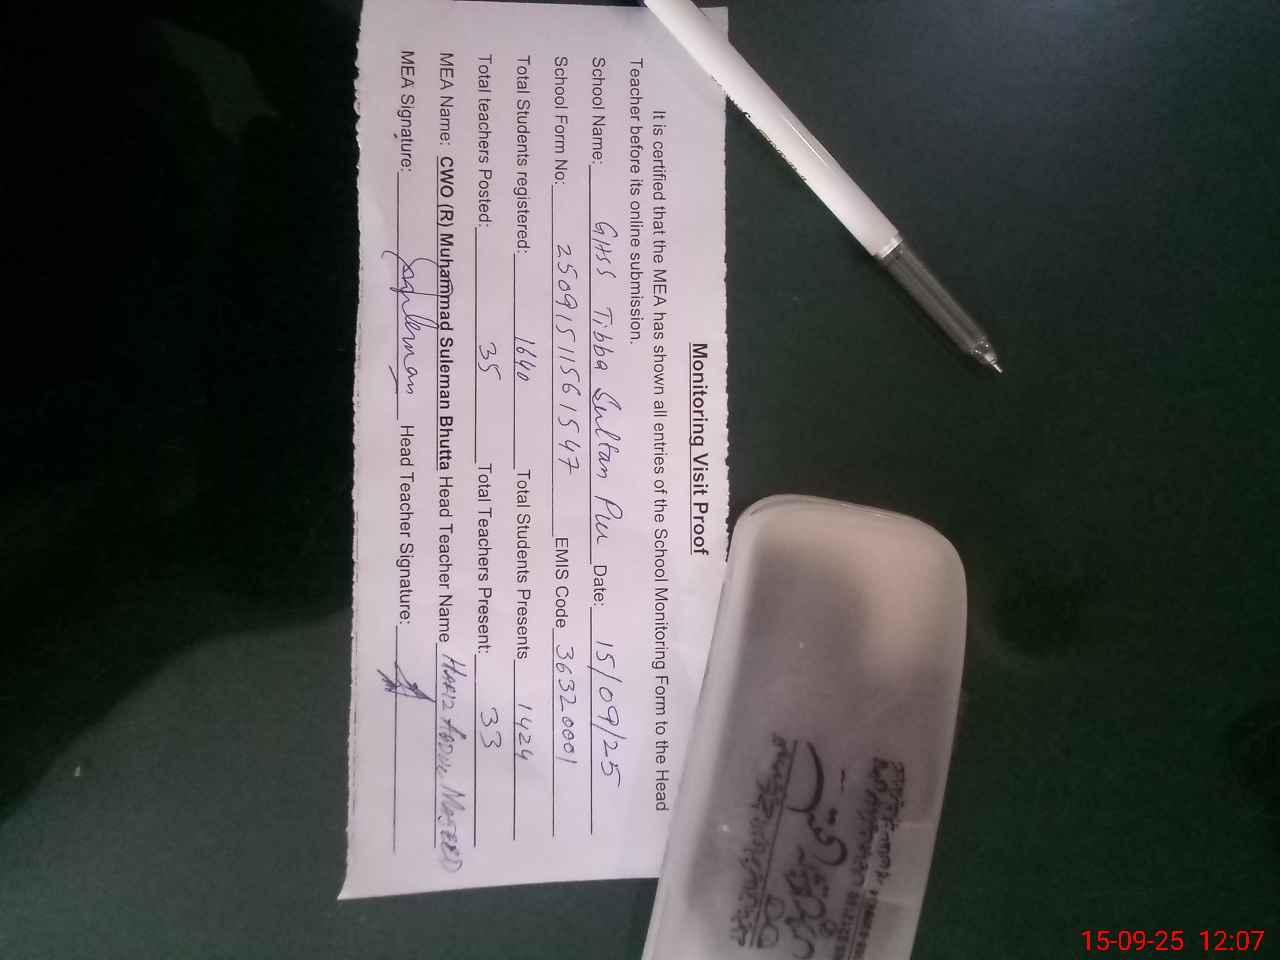 Monitoring Visit Proof
It is certified that the MEA has shown all entries of the School Monitoring Form to the Head
Teacher before its online submission.
School Name: GHSS Tibba Sultan Pur Date: 15/09/25
School Form No: 25091511561547 EMIS Code 36320001
Total Students registered: 1640 Total Students Presents 1424
Total teachers Posted: 35 Total Teachers Present: 33
MEA Name: CWO (R) Muhammad Suleman Bhutta Head Teacher Name HAFIZ ABDUL MAJEED
MEA Signature: Suleman Head Teacher Signature:
15-09-25 12:07